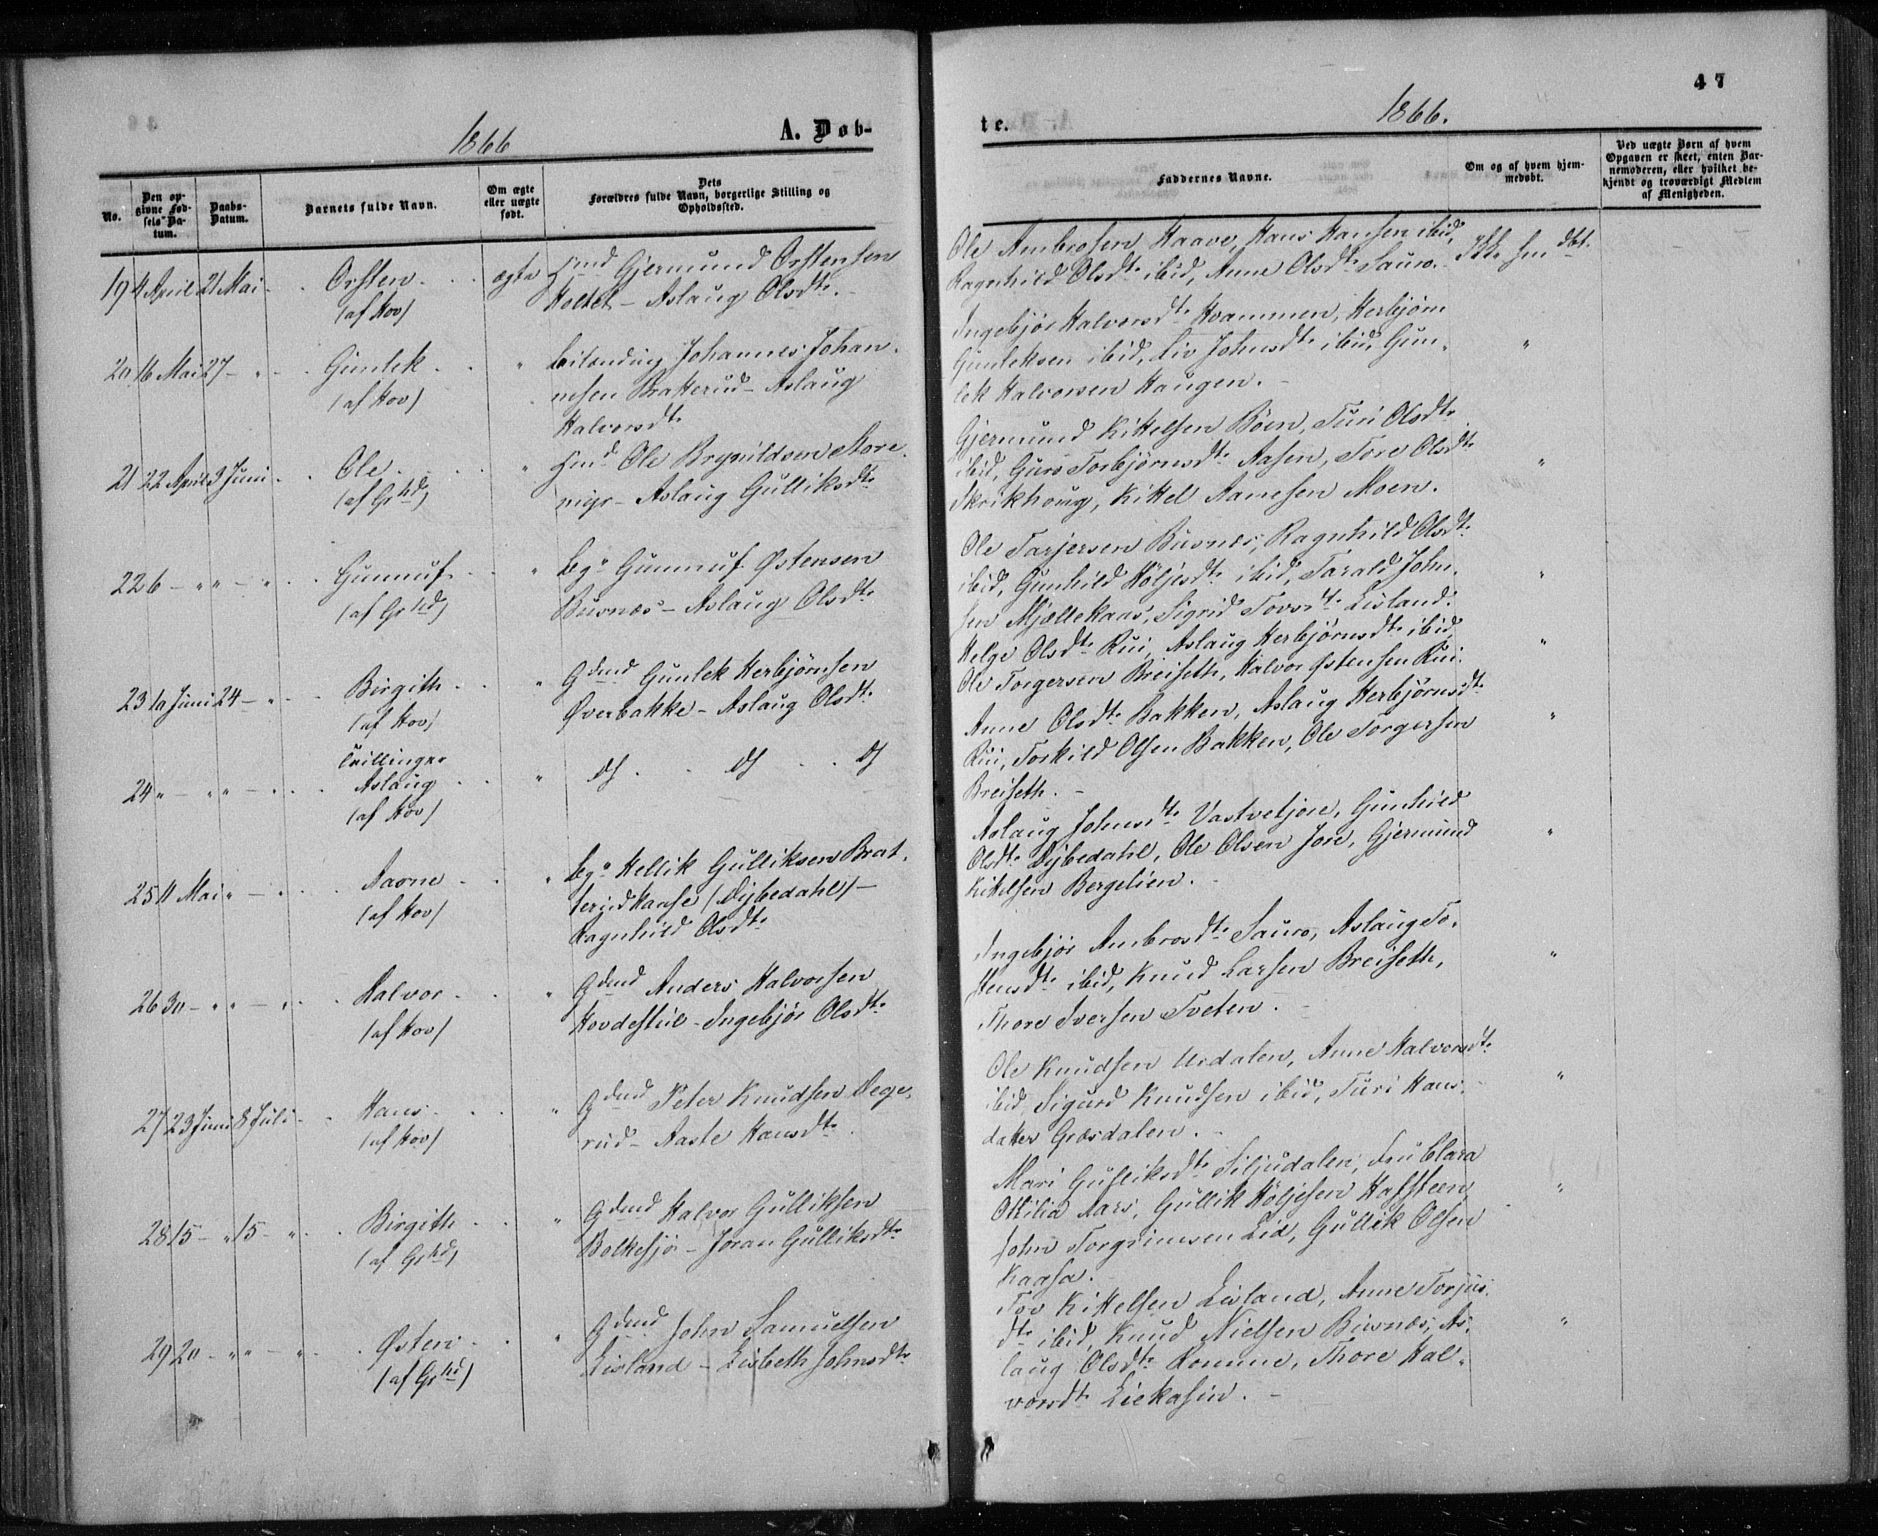 1866
A. Døb-
No.
Den op-
givne Fød-
sels Da-
tum.
Daabs-
Datum.
Barnets fulde Navn.
Om ægte
eller uægte
født.
Dets
Forældres fulde Navn, borgerlige Stilling og
Opholdssted.
19 4 April 21 Mai - . Orsten . . . ægte Hmd Gjermund Orstensen
(af Hov) Holtet - Aslaug Olsdtr.
20 16 Mai 27 - " - . Gunlek . . " Johannes Johan-
(af Hov) nesen Bratterud - Aslaug
Halvorsdtr
21 22 April 3 Juni - . Ole . . . " Hmd Ole Brynildsen More-
(af Grhd) nigr - Aslaug Gulliksdtr
22 6 - " " - " . . Gunnuf . . " bgr Gunnuf Østensen
(af Grhd) Busnæs - Aslaug Olsdtr
23 10 Juni 24 - " . . Birgith . . " Gdmd Gunlek Herbjørnsen
(af Hov) Øverbakke - Aslaug Olsdtr
Tvillinger
24 " - " " - " . . Aslaug . . " ds . . ds . . ds
(af Hov)
25 11 Mai " - " . . Aavne . . " bgr Hellik Gulliksen Brat-
(af Hov) terudkaase (Dybedahl) -
Ragnhild Olsdtr
26 30 - " " - " . . Halvor . . " Gdmd Anders Halvorsen
(af Hov) Hovdestul - Ingebjør Olsdtr
27 23 Juni 8 Juli - . Hans . . . " Gdmd Peter Knudsen Bege-
(af Hov) rud - Aaste Hansdtr.
28 15 - " 15 - " . . Birgith . . " Gdmd Halvor Gulliksen
(af Grhd) Bolkesjø - Joran Gulliksdtr
29 20 - " " - " . . Østen . . " Gdmd John Samuelsen
(af Grhd) Lisland - Lisbeth Johnsdtr
47
te.
1866.
Faddernes Navne.
Om og af hvem hjem-
medøbt.
Ved uægte Børn af hvem
Opgaven er skeet, enten Bar-
nemoderen, eller hvilket be-
kjendt og troværdigt Medlem
af Menigheden.
Ole Ambrosen Haave, Hans Hansen ibid,
Ragnhild Olsdtr ibid, Anne Olsdtr Sauro. - Ikke hmdbt.
Ingebjør Halvorsdtr Kvammen, Herbjørn
Gunleksen ibid, Liv Johnsdtr ibid, Gun- "
lek Halvorsen Haugen. -
Gjermund Kittelsen Bøen, Turi Olsdtr
ibid, Guro Torbjørnsdtr Aasen, Tore Olsdtr "
Skrikhoug, Kittel Aanesen Moen.
Ole Tarjersen Busnæs, Ragnhild Olsdtr
ibid, Gunhild Høljesdtr ibid, Tarald John- "
sen Mjellekaas, Sigrid Tovsdtr Lisland.
Helge Olsdtr Rui, Aslaug Herbjørnsdtr ibid, "
Ole Torgersen Breiseth, Halvor Østensen Rui.
Anne Olsdtr Bakken, Aslaug Herbjørnsdtr
Rui, Torkild Olsen Bakken, Ole Torgersen "
Breiseth. -
Aslaug Johnsdtr Vastvetjore, Gunhild
Olsdtr Dybedahl, Ole Olsen Jore, Gjermund "
Kittelsen Bergelien. -
Ingebjør Ambrosdtr Sauro, Aslaug To-
stensdtr ibid, Knud Larsen Breiseth, "
Thore Iversen Tveten. -
Ole Knudsen Urdalen, Anne Halvorsdtr
ibid, Sigurd Knudsen ibid, Turi Hans- "
datter Græsdalen. -
Mari Gulliksdtr Siljudalen, Fru Clara
Ottilia Aars, Gullik Høljesen Haffsteen, "
John Torgrimsen Lid, Gullik Olsen
Kaasa. -
Tov Kittelsen Lisland, Anne Torjus-
dtr ibid, Knud Nielsen Busnæs, As- "
laug Olsdtr Romme, Thore Hal-
vorsdtr Liekasin. -